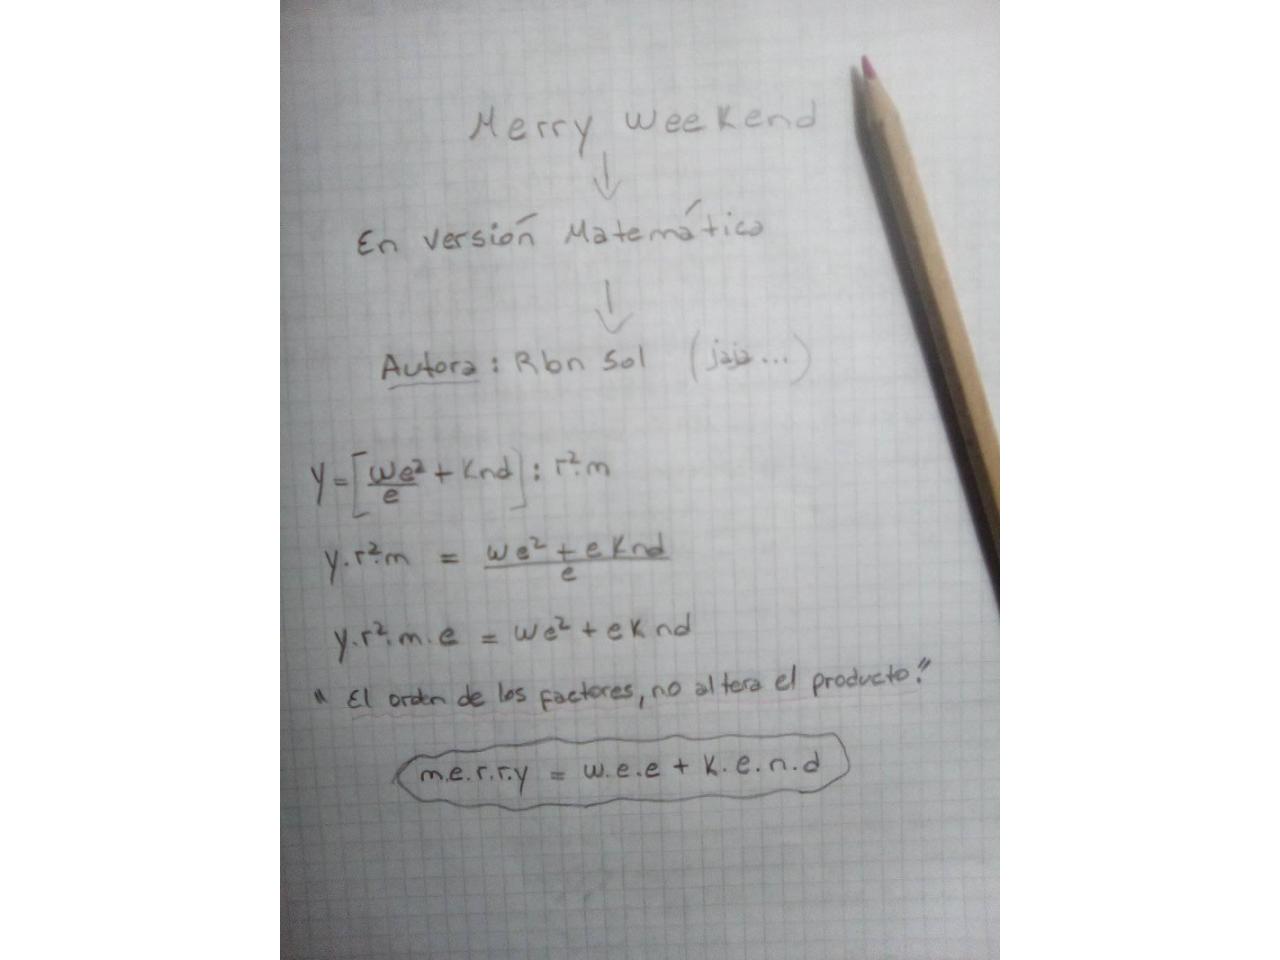 Merry Weekend
↓
En versión Matemática
↓
Autora: Rbn Sol (jaja...)
y = [we²/e + Knd] : r².m
y.r².m = we² + e Knd / e
y.r².m.e = we² + e K nd
" El orden de los factores, no altera el producto."
m.e.r.r.y = w.e.e + K.e.n.d